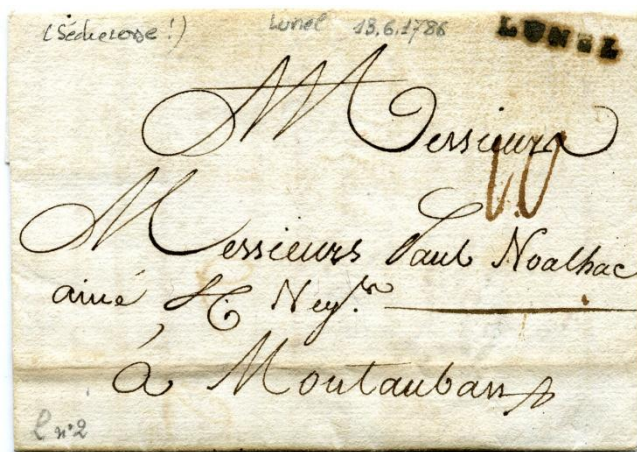 (Sécheresse !) Lunel 13.6.1786 LUNEL
Messieurs
10
Messieurs Paul Noalhac
ainé & Ney.
à Montauban
L n°2